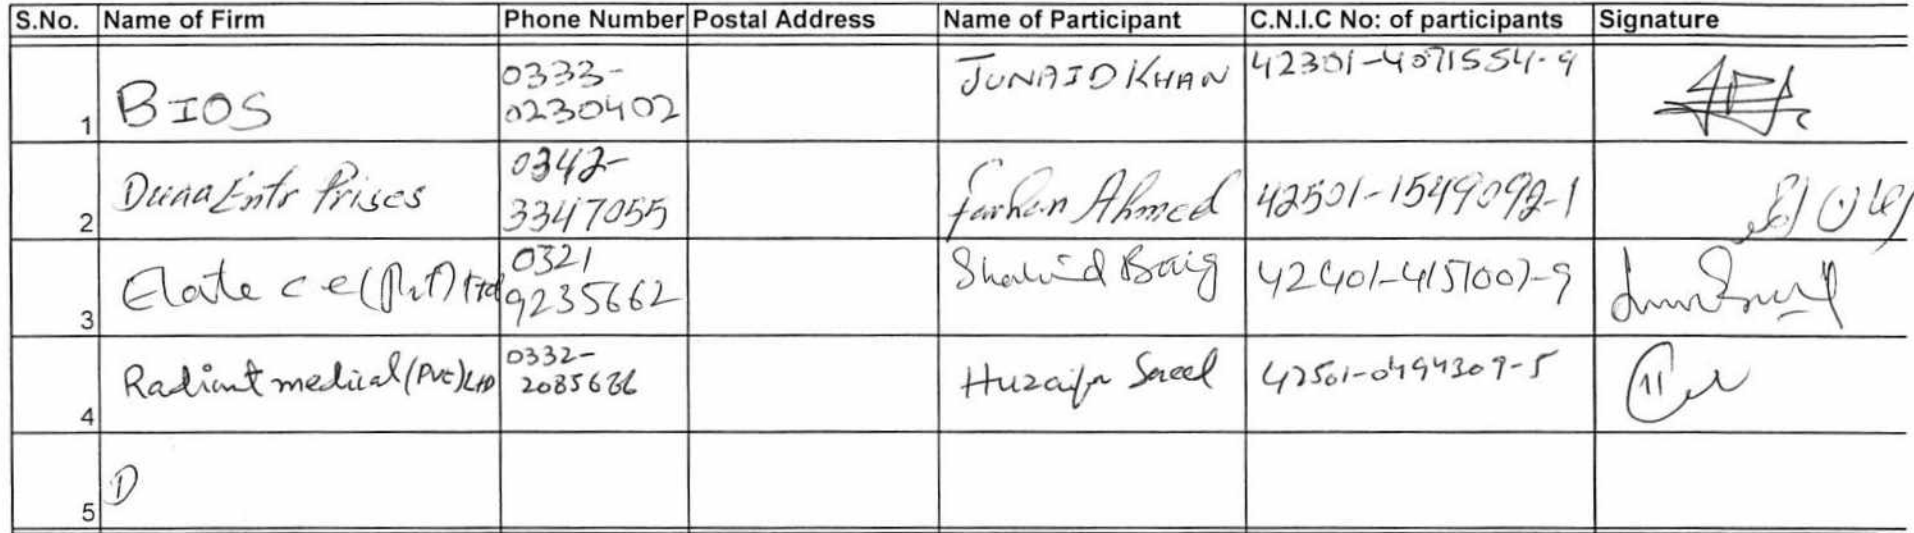 S.No. Name of Firm Phone Number Postal Address Name of Participant C.N.I.C No: of participants Signature
1 BIOS 0333-02230402 JUNAID KHAN 42301-4071554-9
2 Duaa Entr Prises 0342-3347055 Farhan Ahmed 42501-1549092-1
3 Elate c e (Pvt) Ltd 0321 9235662 Shahid Baig 42401-4151007-9
4 Radiant medical (Pvt) LTD 0332-2085686 Huzaifa Saeed 42501-0494309-5
5 D